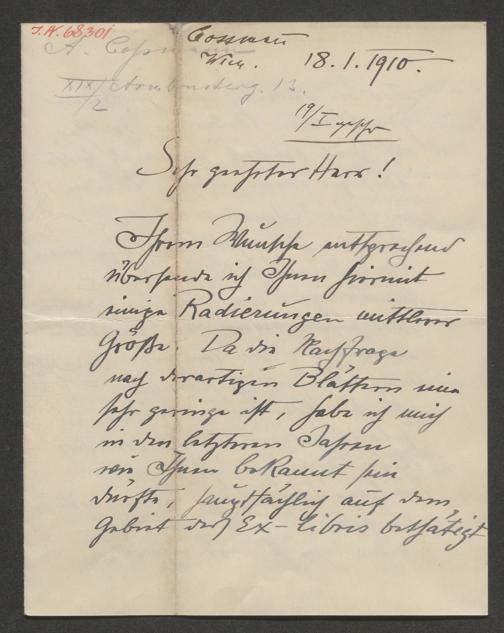 I.N. 68.301
A. Cossmann
Cossmann
Wien. 18.1.1910.
XIX/2 13.
19/I
Sehr geehrter Herr!
Ihrem Wunsche entsprechend
übersende ich Ihnen hiermit
einige Radierungen mittlerer
Größe. Da die Nachfrage
nach derartigen Blättern eine
sehr geringe ist, habe ich mich
in den letzteren Jahren
wie Ihnen bekannt sein
dürfte, hauptsächlich auf dem
Gebiet des Ex-libris bethätigt